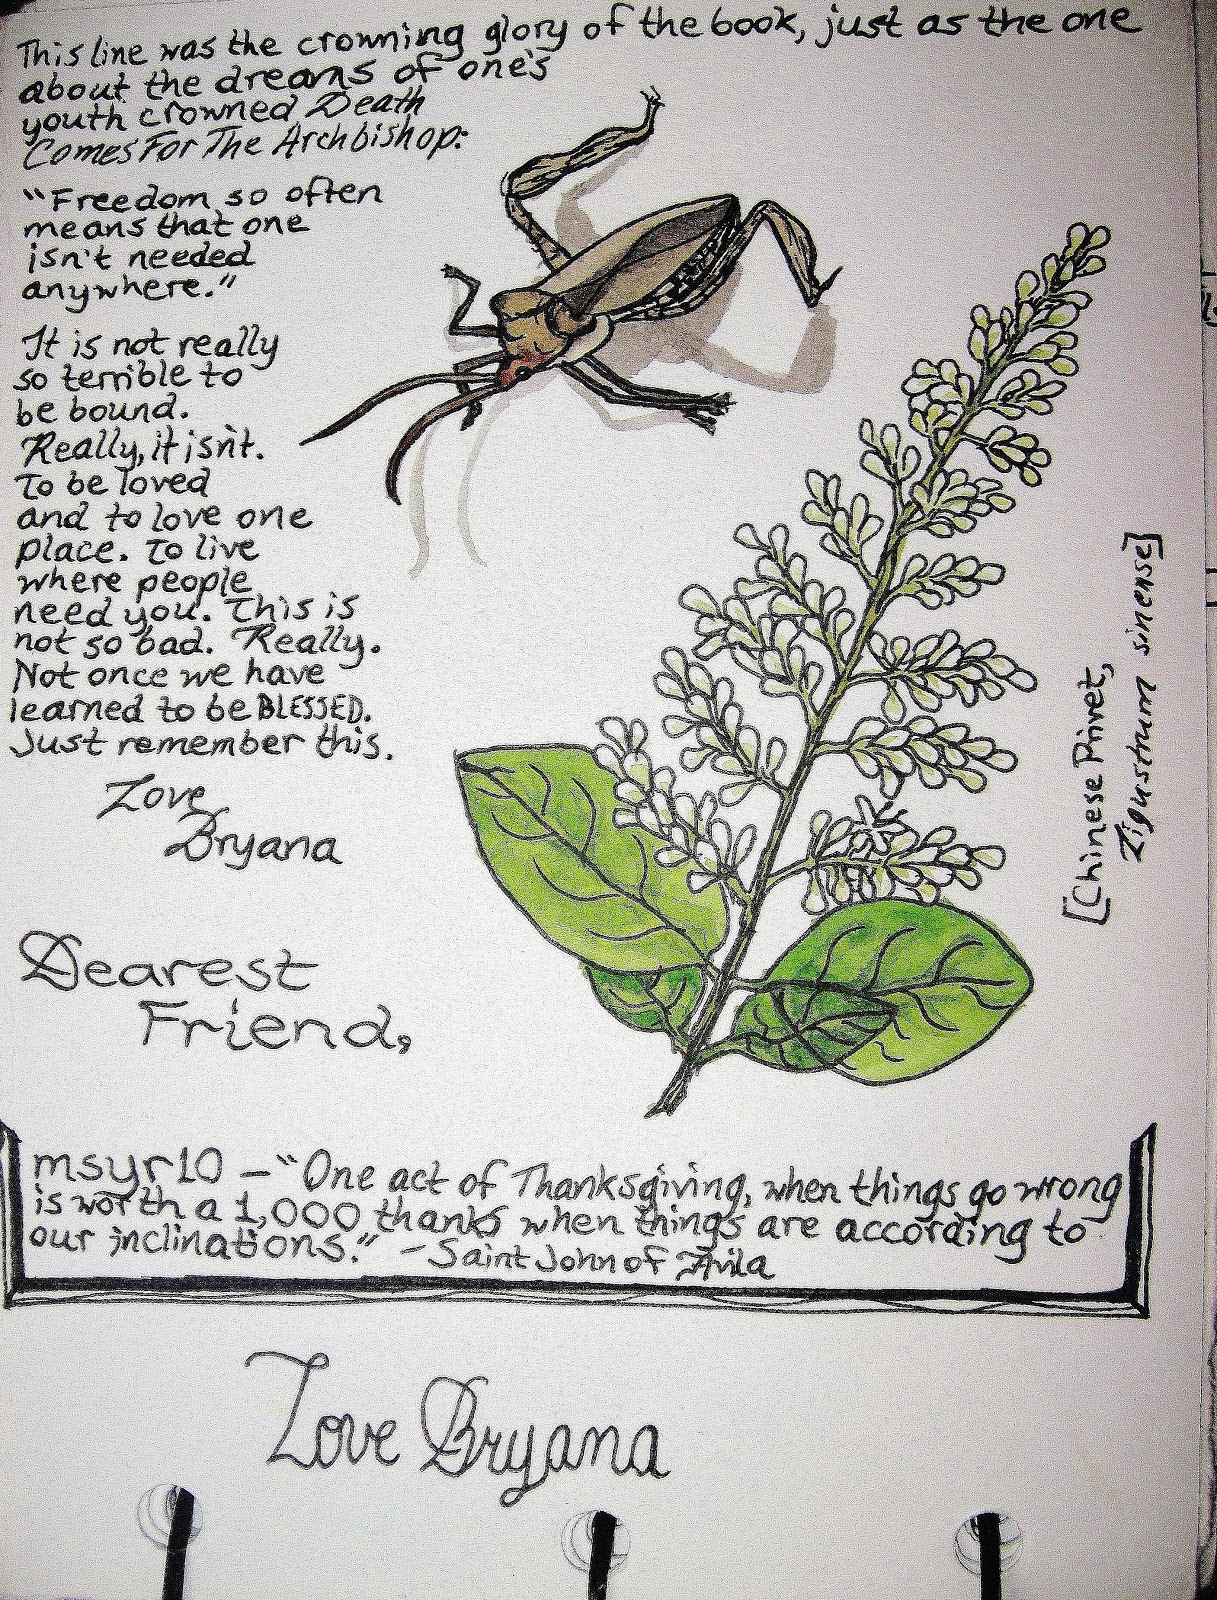 This line was the crowning glory of the book, just as the one
about the dreams of one's
youth crowned Death
Comes For The Archbishop:
"Freedom so often
means that one
isn't needed
anywhere."
It is not really
so terrible to
be bound.
Really, it isn't.
To be loved
and to love one
place. To live
where people
need you. This is
not so bad. Really.
Not once we have
learned to be BLESSED.
Just remember this.
Love
Bryana
[Chinese Privet,
Ligustrum sinense]
Dearest
Friend,
msyr10 – "One act of Thanksgiving, when things go wrong
is worth a 1,000 thanks when things are according to
our inclinations." – Saint John of Avila
Love Bryana